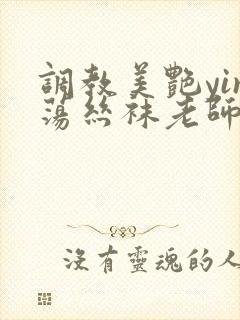 調教美艷yin
蕩絲袜老師
沒有靈魂的人